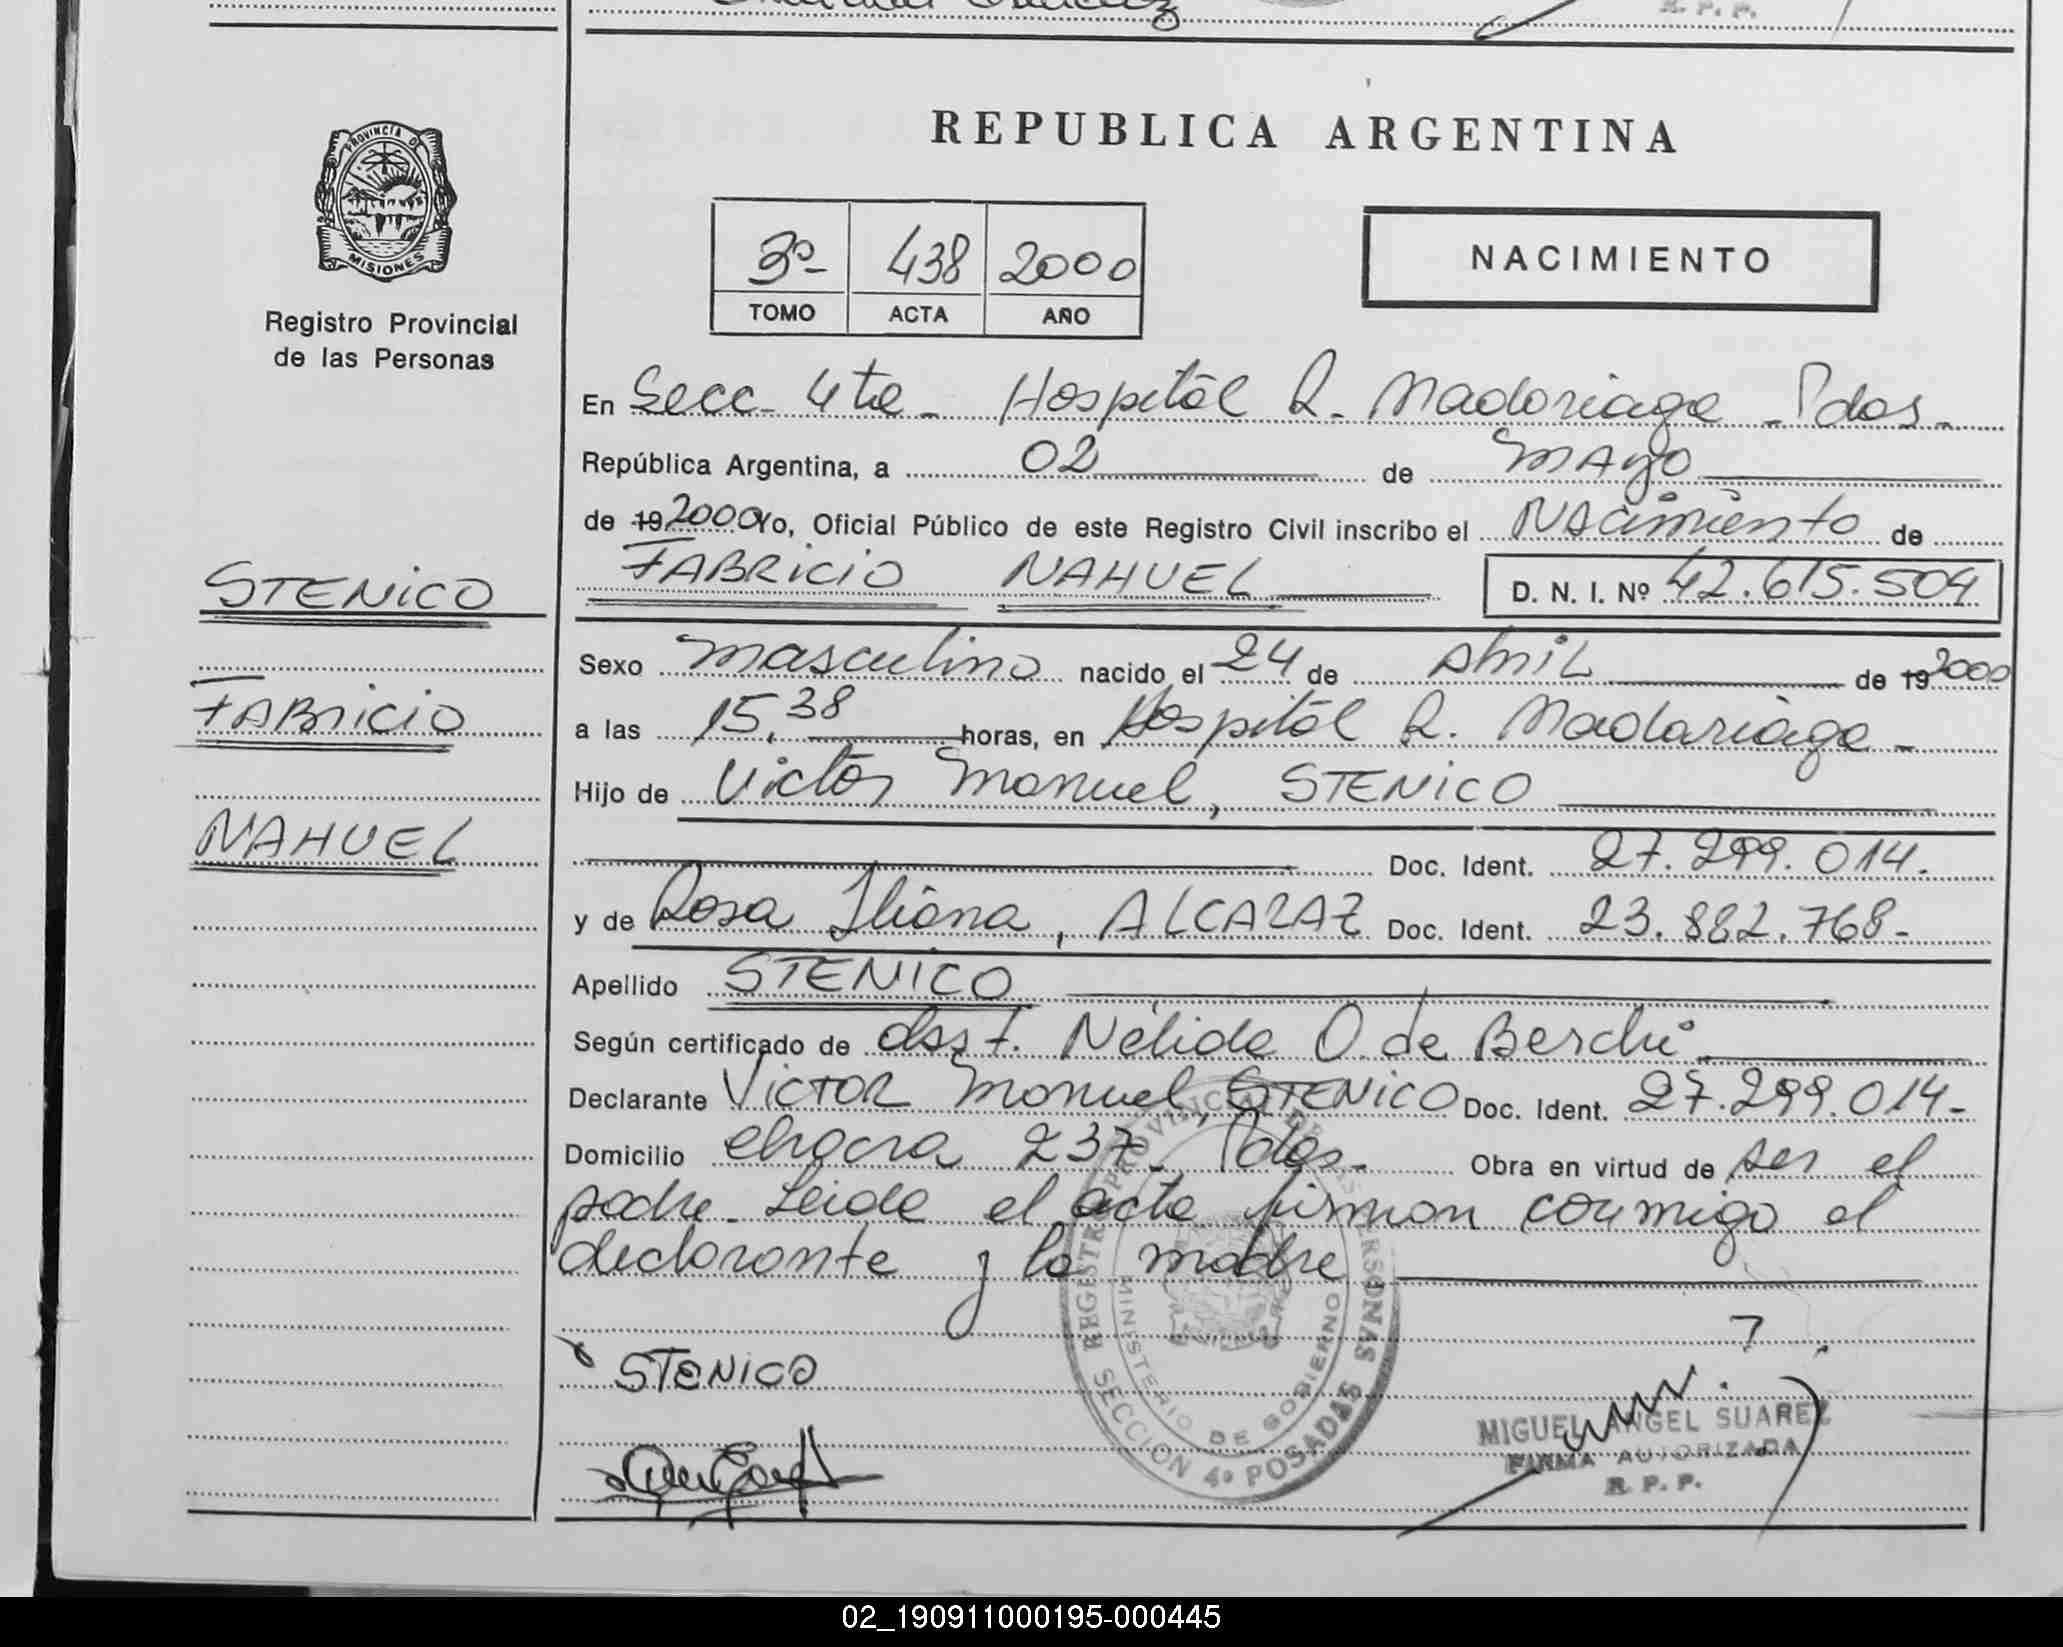 R. P. P.
PROVINCIA DE
MISIONES
Registro Provincial
de las Personas
STENICO
FABRICIO
NAHUEL
REPUBLICA ARGENTINA
3º- 438 2000
TOMO ACTA AÑO
NACIMIENTO
En Secc. 4ta - Hospital R. Madariaga - Pdas.
República Argentina, a 02 de Mayo
de 19 2000 Yo, Oficial Público de este Registro Civil inscribo el Nacimiento de
FABRICIO NAHUEL D. N. I. Nº 42.615.504
Sexo masculino nacido el 24 de Abril de 19 2000
a las 15,38 horas, en Hospital R. Madariaga -
Hijo de Victor Manuel, STENICO
Doc. Ident. 27.299.014.
y de Rosa Iliana, ALCARAZ Doc. Ident. 23.882.768-
Apellido STENICO
Según certificado de obst. Nélida O. de Berchi
Declarante Victor Manuel, STENICO Doc. Ident. 27.299.014-
Domicilio chacra 237 - Pdas. Obra en virtud de ser el
padre. Leida el acta firman conmigo el
declarante y la madre
STENICO
REGISTRO PROVINCIAL DE LAS PERSONAS
MINISTERIO DE GOBIERNO
SECCION 4º POSADAS
MIGUEL ANGEL SUAREZ
FIRMA AUTORIZADA
R. P. P.
02_190911000195-000445